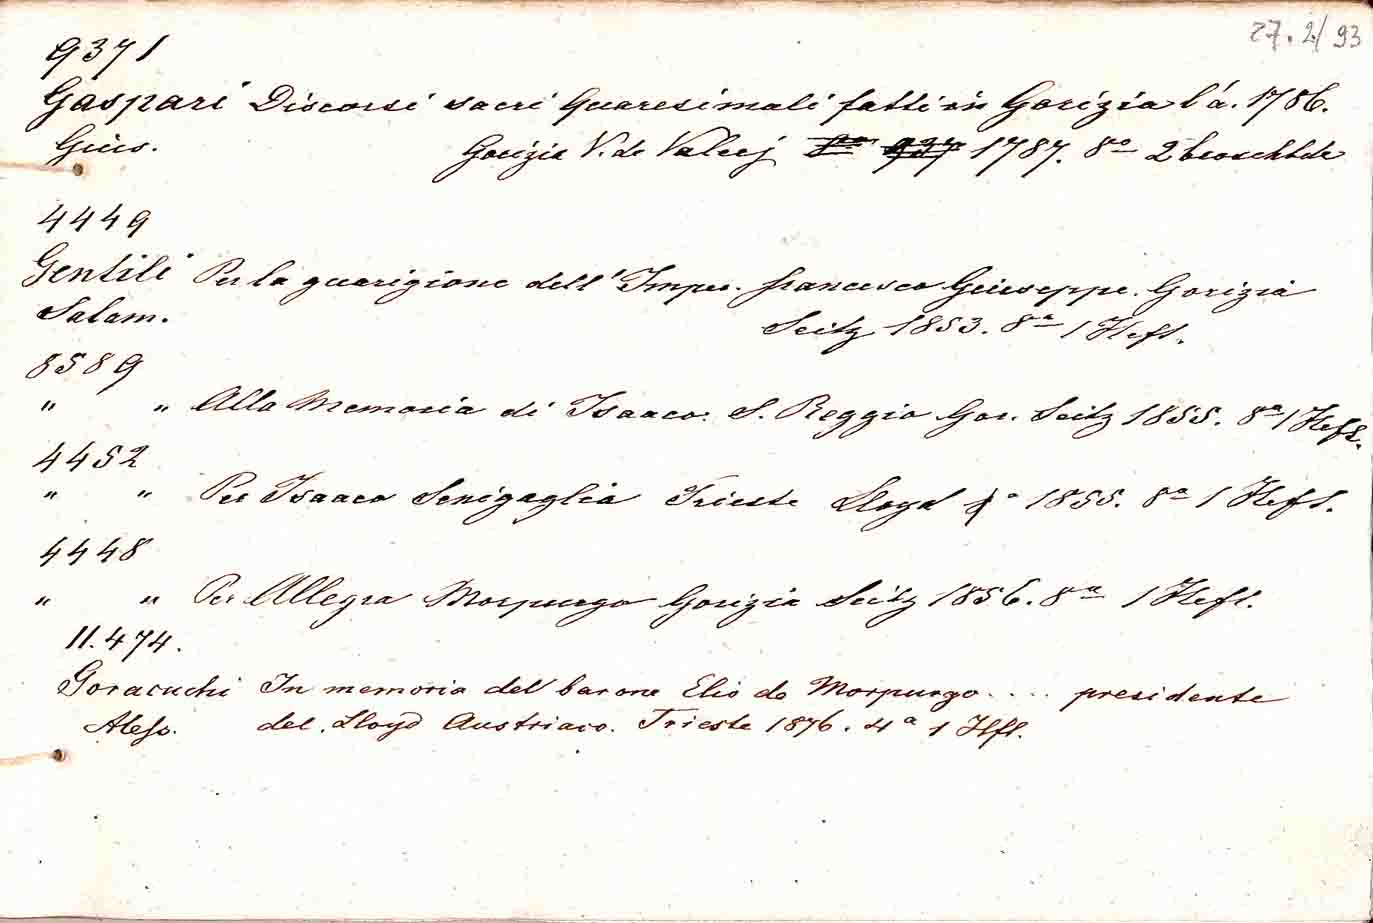 27.2/93
9371
Gaspari Discorsi sacri Quaresimali fatti in Gorizia l'a. 1786.
Gius. Gorizia V. de Valerj 1787. 8° 2
4449
Gentili Per la guarigione dell'Imper. Francesco Giuseppe. Gorizia
Salam. Seitz 1853. 8° 1 Heft.
8589
" " Alla Memoria di Isaaco. S. Reggio Gor. Seitz 1855. 8° 1 Heft.
4452
" " Per Isaaco Senigaglia Trieste Lloyd 1855. 8° 1 Heft.
4448
" " Per Allegra Morpurgo Gorizia Seitz 1856. 8° 1 Heft.
11.474.
Goracuchi In memoria del barone Elio de Morpurgo .... presidente
Aless. del. Lloyd Austriaco. Trieste 1876. 4° 1 Hft.